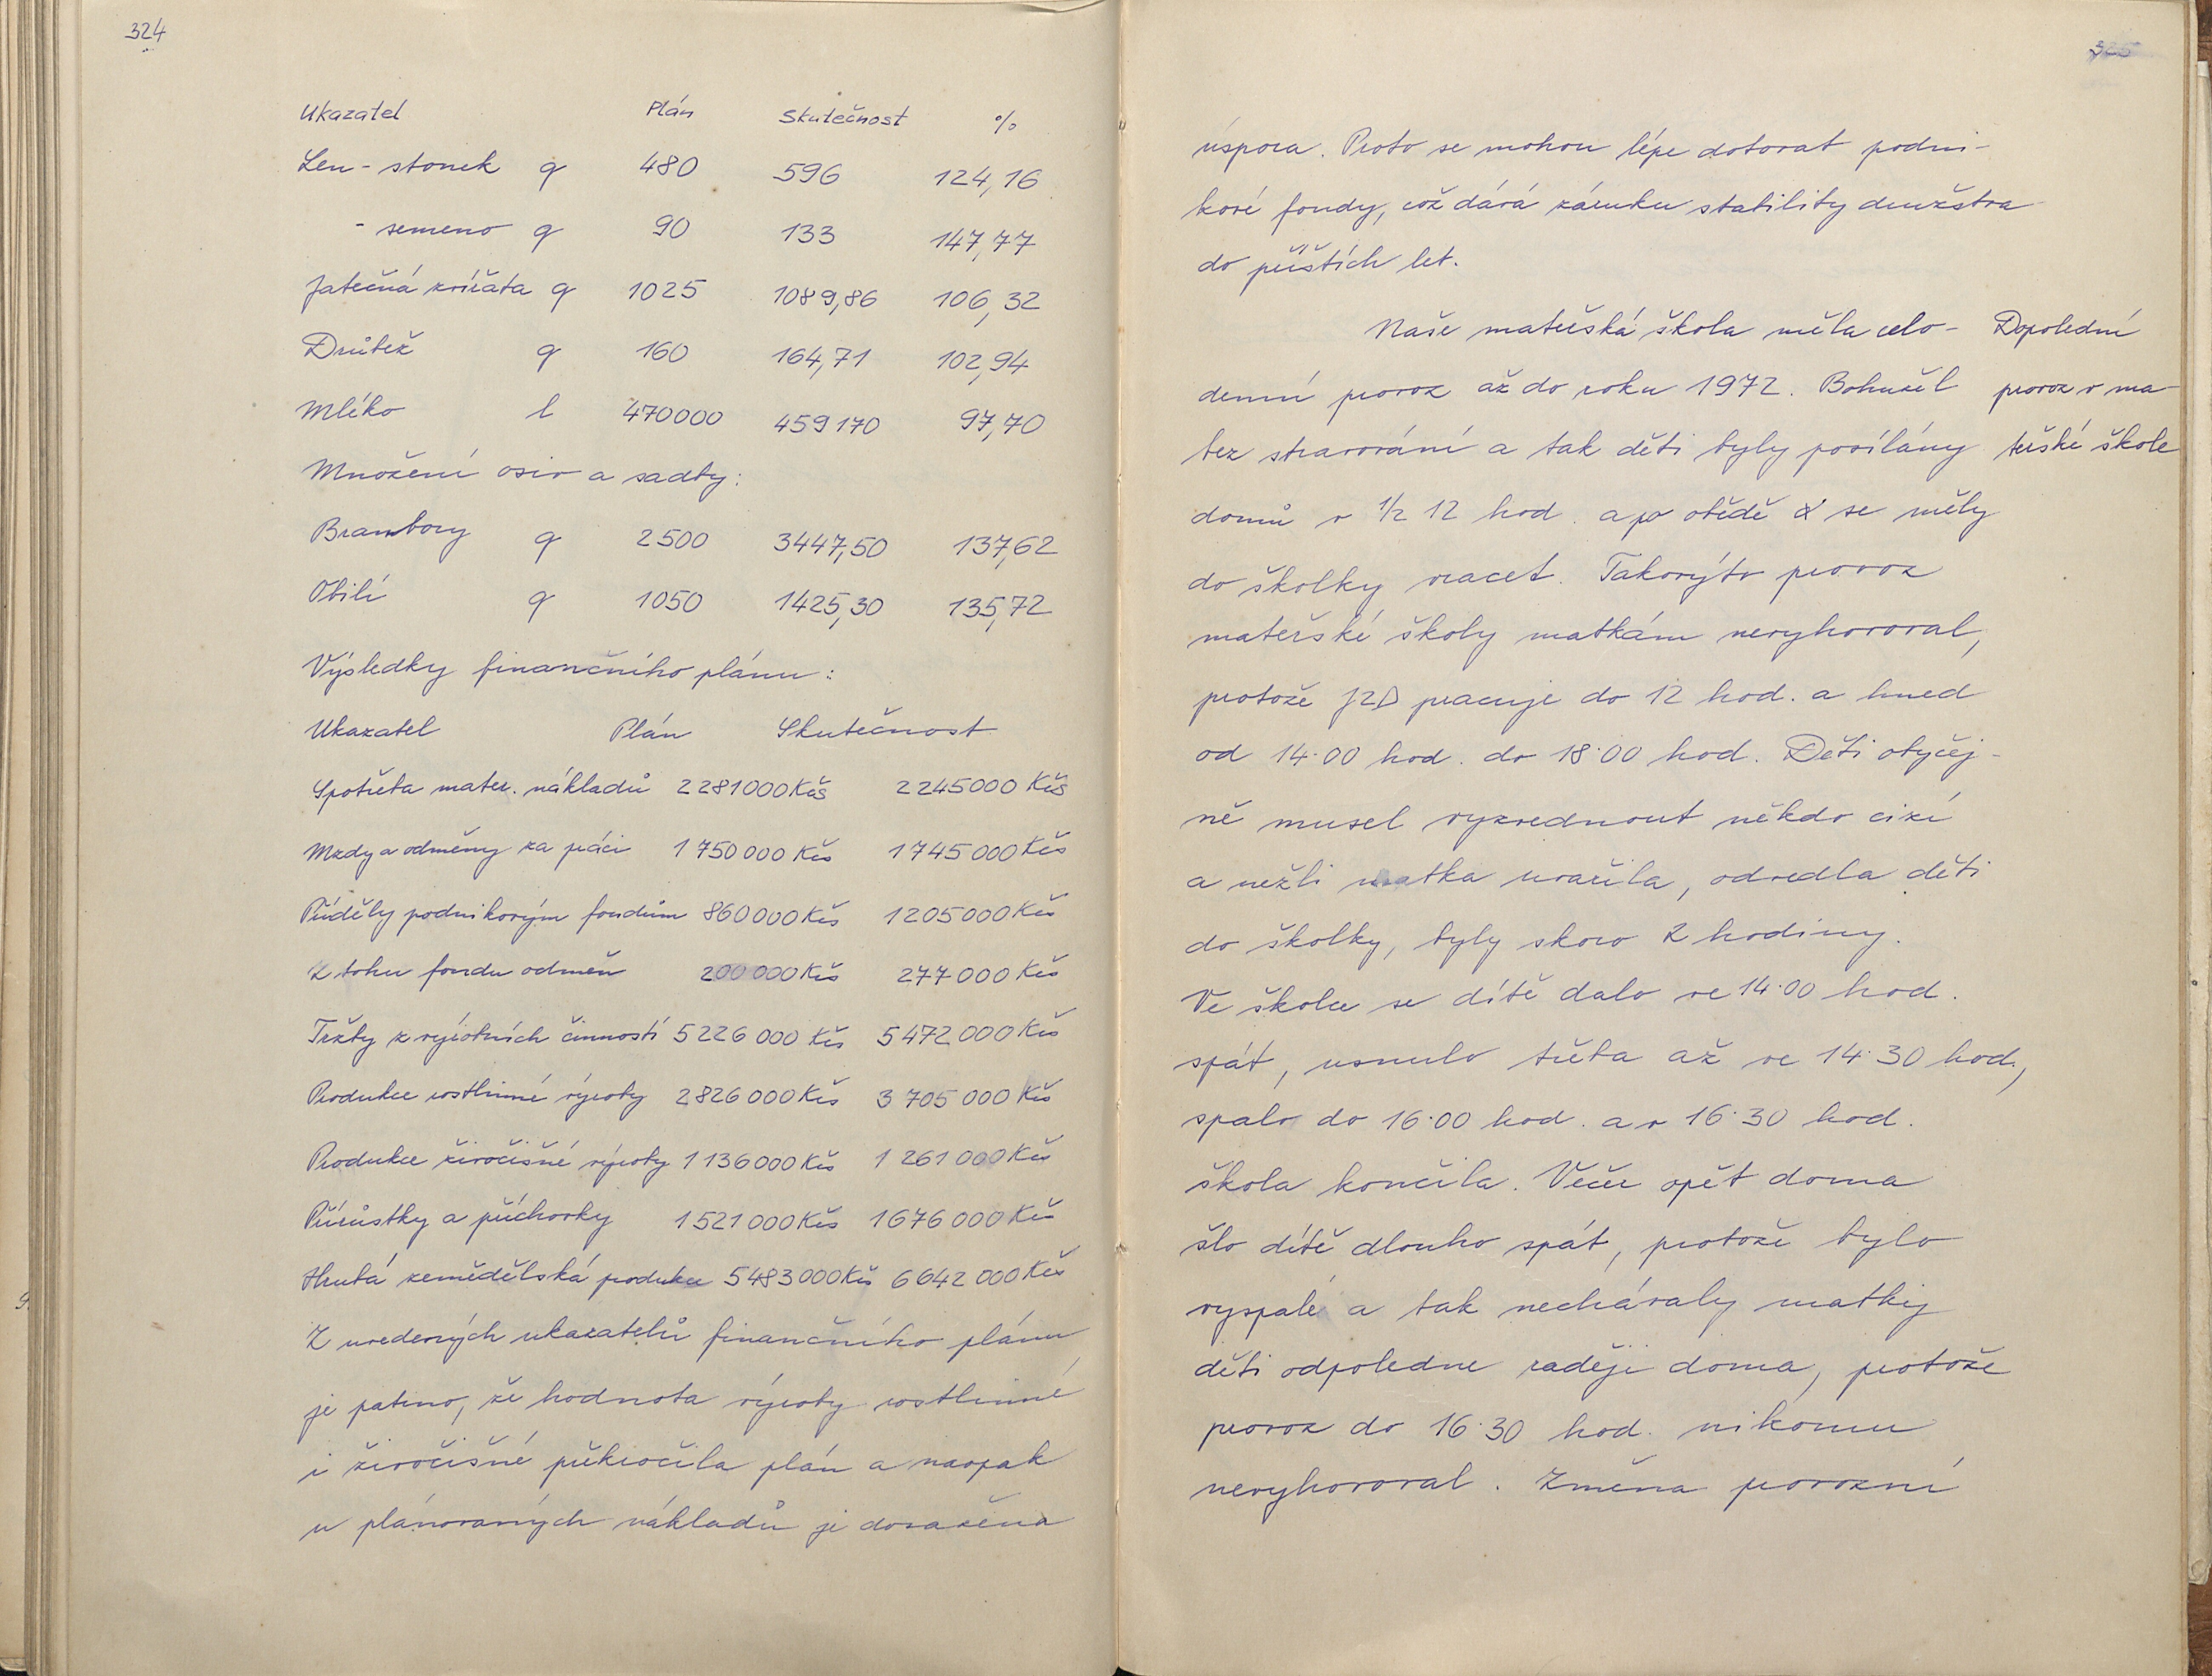 324
Ukazatel Plán Skutečnost %
Len - stonek q 480 596 124,16
- semeno q 90 133 147,77
Jatečná zvířata q 1025 1089,86 106,32
Drůbež q 160 164,71 102,94
Mléko l 470000 459170 97,70
Množení osiv a sadby:
Brambory q 2500 3447,50 137,62
Obilí q 1050 1425,30 135,72
Výsledky finančního plánu:
Ukazatel Plán Skutečnost
Spotřeba mater. nákladů 2281000 Kčs 2245000 Kčs
Mzdy a odměny za práci 1750000 Kčs 1745000 Kčs
Příděly podnikovým fondům 860000 Kčs 1205000 Kčs
z tohu fondu odměn 200000 Kčs 277000 Kčs
Tržby z výrobních činností 5226000 Kčs 5472000 Kčs
Produkce rostlinné výroby 2826000 Kčs 3705000 Kčs
Produkce živočišné výroby 1136000 Kčs 1261000 Kčs
Přírůstky a příchovky 1521000 Kčs 1676000 Kčs
Hrubá zemědělská produkce 5483000 Kčs 6642000 Kčs
Z uvedených ukazatelů finančního plánu
je patrno, že hodnota výroby rostlinné
i živočišné překročila plán a naopak
u plánovaných nákladů je dosažena
325
úspora. Proto se mohou lépe dotovat podni-
kové fondy, což dává záruku stability družstva
do příštích let.
Naše mateřská škola měla celo-
denní provoz až do roku 1972. Bohužel
bez stravování a tak děti byly posílány
domů v 1/2 12 hod. a po obědě se měly
do školky vracet. Takovýto provoz
mateřské školy matkám nevyhovoval,
protože JZD pracuje do 12 hod. a hned
od 14.00 hod. do 18.00 hod. Děti obyčej-
ně musel vyzvednout někdo cizí
a nežli matka uvařila, odvedla děti
do školky, byly skoro 2 hodiny.
Ve školce se dítě dalo ve 14.00 hod.
spát, usnulo třeba až ve 14.30 hod.,
spalo do 16.00 hod. a v 16.30 hod.
škola končila. Večer opět doma
šlo dítě dlouho spát, protože bylo
vyspalé a tak nechávaly matky
děti odpoledne raději doma, protože
provoz do 16.30 hod. nikomu
nevyhovoval. Změna provozní
Dopolední
provoz v ma-
teřské škole